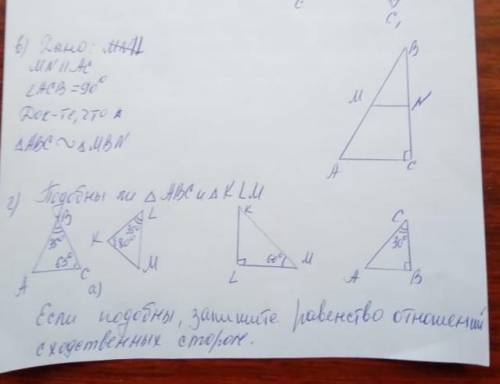 C C₁
в) Дано:
MN || AC
∠ACB = 90°
Док-те, что
△ABC ∼ △MBN
B
M N
A C
г) Подобны ли △ABC и △KLM
B L K C
35° 35° 30°
K 80° 60°
65°
A C M L M A B
а)
Если подобны, запишите равенство отношений
сходственных сторон.